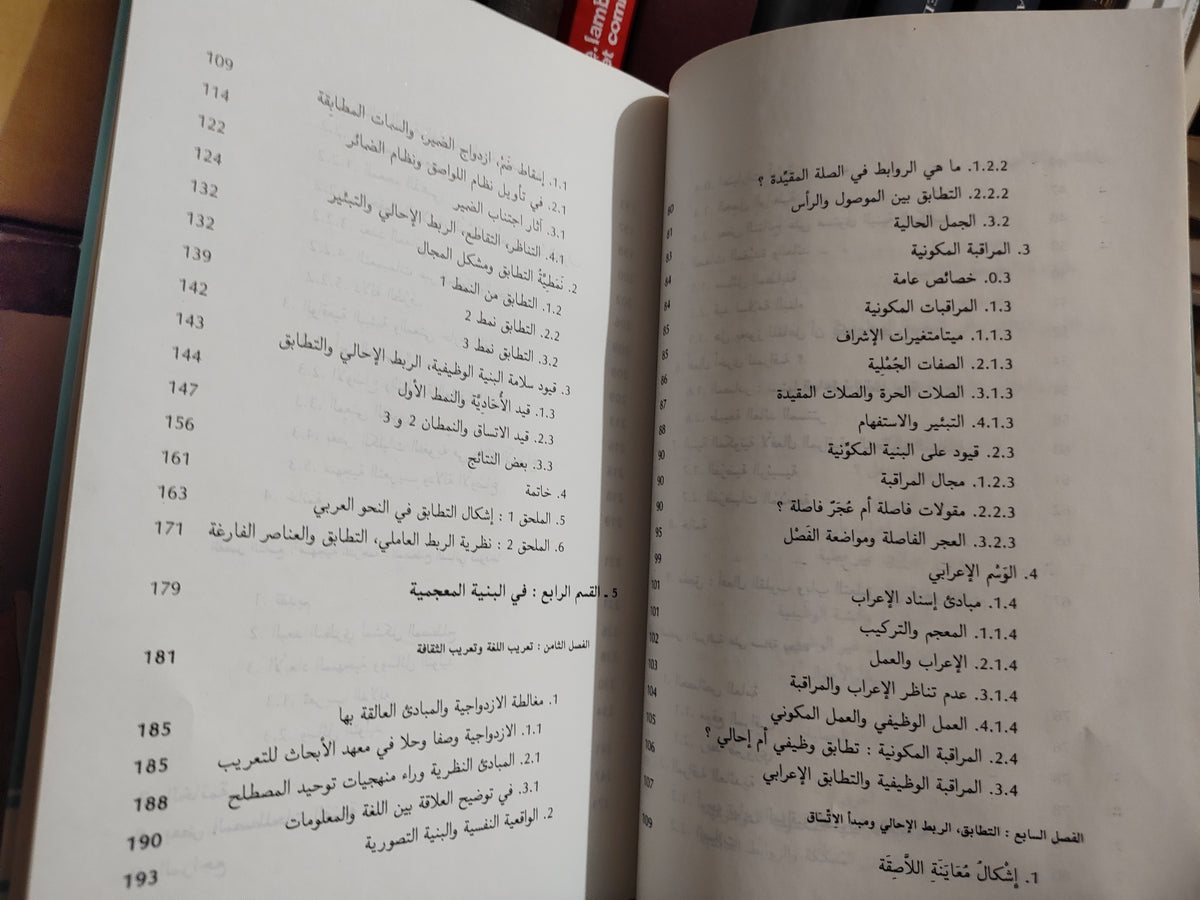 1.2.2. ما هي الروابط في الصلة المقيَّدة ؟ 80
2.2.2. التطابق بين الموصول والرأس 81
3.2. الجمل الحالية 83
3. المراقبة المكونية 84
0.3. خصائص عامة 84
1.3. المراقبات المكونية 85
1.1.3. ميتامتغيرات الإشراف 85
2.1.3. الصفات الجُمْلية 86
3.1.3. الصلات الحرة والصلات المقيدة 87
4.1.3. التبئير والاستفهام 88
2.3. قيود على البنية المكوِّنية 90
1.2.3. مجال المراقبة 90
2.2.3. مقولات فاصلة أم عُجَرٌ فاصلة ؟ 90
3.2.3. العجر الفاصلة ومواضعة الفَصْل 95
4. الوَسْم الإعرابي 99
1.4. مبادئ إسناد الإعراب 101
1.1.4. المعجم والتركيب 101
2.1.4. الإعراب والعمل 102
3.1.4. عدم تناظر الإعراب والمراقبة 103
4.1.4. العمل الوظيفي والعمل المكوني 104
2.4. المراقبة المكونية : تطابق وظيفي أم إحالي ؟ 105
3.4. المراقبة الوظيفية والتطابق الإعرابي 106
الفصل السابع : التطابق، الربط الإحالي ومبدأ الاتّساق 107
1. إشْكالُ مُعَايَنَةِ اللاَّصِقَة 109
1.1. إسقاط ضَمُ، ازدواج الضمير، والسمات المطابِقة 109
2.1. في تأويل نظام اللواصق ونظام الضمائر 114
3.1. آثار اجتناب الضمير 122
4.1. التناظر، التقاطع، الربط الإحالي والتبئير 124
2. نَمَطِيَّةُ التطابق ومشكل المجال 132
1.2. التطابق من النمط 1 132
2.2. التطابق نمط 2 139
3.2. التطابق نمط 3 142
3. قيود سلامة البنية الوظيفية، الربط الإحالي والتطابق 143
1.3. قيد الأُحَادِيَّة والنمط الأول 144
2.3. قيد الاتساق والنمطان 2 و 3 147
3.3. بعض النتائج 156
4. خاتمة 161
5. الملحق 1 : إشكال التطابق في النحو العربي 163
6. الملحق 2 : نظرية الربط العاملي، التطابق والعناصر الفارغة 171
5 ـ القسم الرابع : في البنية المعجمية 179
الفصل الثامن : تعريب اللغة وتعريب الثقافة 181
1. مغالطة الازدواجية والمبادئ العالقة بها 185
1.1. الازدواجية وصفا وحلا في معهد الأبحاث للتعريب 185
2.1. المبادئ النظرية وراء منهجيات توحيد المصطلح 188
3.1. في توضيح العلاقة بين اللغة والمعلومات 190
2. الواقعية النفسية والبنية التصورية 193